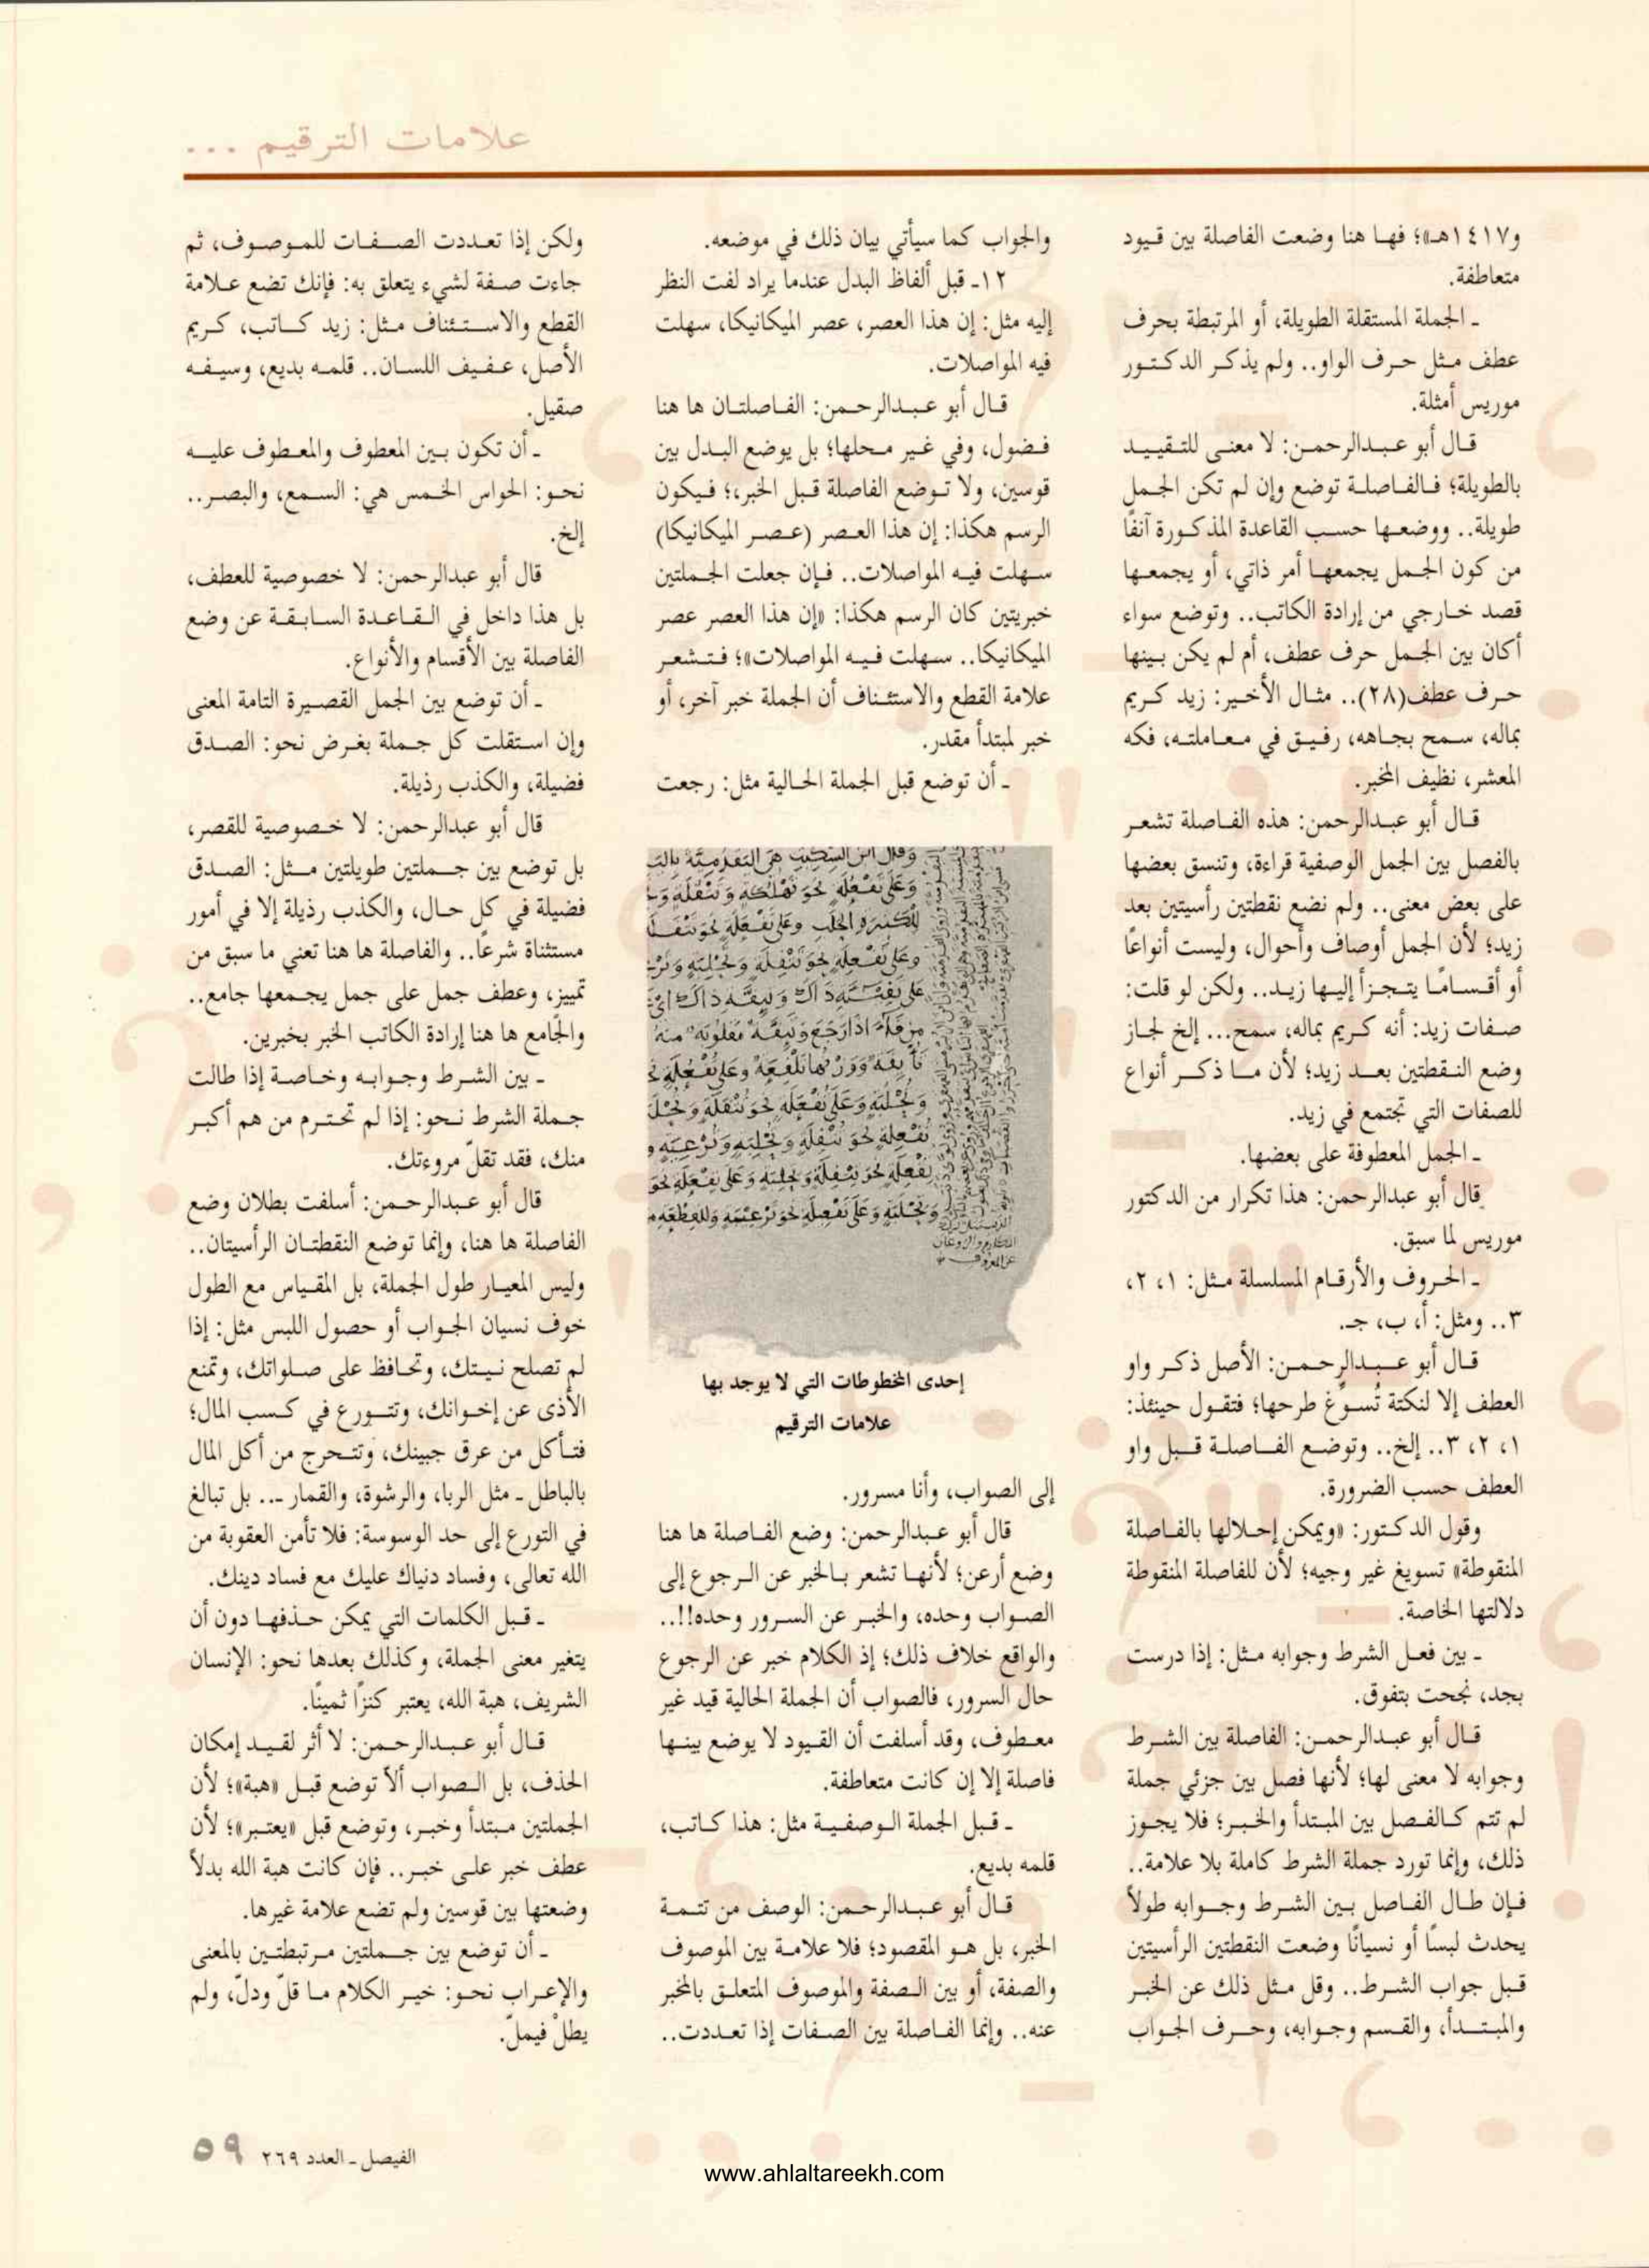 علامات الترقيم ...
و١٤١٧هـ»؛ فها هنا وضعت الفاصلة بين قيود
متعاطفة.
ـ الجملة المستقلة الطويلة، أو المرتبطة بحرف
عطف مثل حرف الواو.. ولم يذكر الدكتور
موريس أمثلة.
قال أبو عبدالرحمن: لا معنى للتقييد
بالطويلة؛ فالفاصلة توضع وإن لم تكن الجمل
طويلة.. ووضعها حسب القاعدة المذكورة آنفًا
من كون الجمل يجمعها أمر ذاتي، أو يجمعها
قصد خارجي من إرادة الكاتب.. وتوضع سواء
أكان بين الجمل حرف عطف، أم لم يكن بينها
حرف عطف(٢٨).. مثال الأخير: زيد كريم
بماله، سمح بجاهه، رفيق في معاملته، فكه
المعشر، نظيف المخبر.
قال أبو عبدالرحمن: هذه الفاصلة تشعر
بالفصل بين الجمل الوصفية قراءة، وتنسق بعضها
على بعض معنى.. ولم نضع نقطتين رأسيتين بعد
زيد؛ لأن الجمل أوصاف وأحوال، وليست أنواعًا
أو أقسامًا يتجزأ إليها زيد.. ولكن لو قلت:
صفات زيد: أنه كريم بماله، سمح... إلخ لجاز
وضع النقطتين بعد زيد؛ لأن ما ذكر أنواع
للصفات التي تجتمع في زيد.
ـ الجمل المعطوفة على بعضها.
قال أبو عبدالرحمن: هذا تكرار من الدكتور
موريس لما سبق.
ـ الحروف والأرقام المسلسلة مثل: ١، ٢،
٣.. ومثل: أ، ب، جـ.
قال أبو عبدالرحمن: الأصل ذكر واو
العطف إلا لنكتة تُسوِّغ طرحها؛ فتقول حينئذ:
١، ٢، ٣.. إلخ.. وتوضع الفاصلة قبل واو
العطف حسب الضرورة.
وقول الدكتور: «ويمكن إحلالها بالفاصلة
المنقوطة» تسويغ غير وجيه؛ لأن للفاصلة المنقوطة
دلالتها الخاصة.
ـ بين فعل الشرط وجوابه مثل: إذا درست
بجد، نجحت بتفوق.
قال أبو عبدالرحمن: الفاصلة بين الشرط
وجوابه لا معنى لها؛ لأنها فصل بين جزئي جملة
لم تتم كالفصل بين المبتدأ والخبر؛ فلا يجوز
ذلك، وإنما تورد جملة الشرط كاملة بلا علامة..
فإن طال الفاصل بين الشرط وجوابه طولاً
يحدث لبسًا أو نسيانًا وضعت النقطتين الرأسيتين
قبل جواب الشرط.. وقل مثل ذلك عن الخبر
والمبتدأ، والقسم وجوابه، وحرف الجواب
والجواب كما سيأتي بيان ذلك في موضعه.
١٢ـ قبل ألفاظ البدل عندما يراد لفت النظر
إليه مثل: إن هذا العصر، عصر الميكانيكا، سهلت
فيه المواصلات.
قال أبو عبدالرحمن: الفاصلتان ها هنا
فضول، وفي غير محلها؛ بل يوضع البدل بين
قوسين، ولا توضع الفاصلة قبل الخبر،؛ فيكون
الرسم هكذا: إن هذا العصر (عصر الميكانيكا)
سهلت فيه المواصلات.. فإن جعلت الجملتين
خبريتين كان الرسم هكذا: «إن هذا العصر عصر
الميكانيكا.. سهلت فيه المواصلات»؛ فتشعر
علامة القطع والاستئناف أن الجملة خبر آخر، أو
خبر لمبتدأ مقدر.
ـ أن توضع قبل الجملة الحالية مثل: رجعت
إحدى المخطوطات التي لا يوجد بها
علامات الترقيم
إلى الصواب، وأنا مسرور.
قال أبو عبدالرحمن: وضع الفاصلة ها هنا
وضع أرعن؛ لأنها تشعر بالخبر عن الرجوع إلى
الصواب وحده، والخبر عن السرور وحده!!..
والواقع خلاف ذلك؛ إذ الكلام خبر عن الرجوع
حال السرور، فالصواب أن الجملة الحالية قيد غير
معطوف، وقد أسلفت أن القيود لا يوضع بينها
فاصلة إلا إن كانت متعاطفة.
ـ قبل الجملة الوصفية مثل: هذا كاتب،
قلمه بديع.
قال أبو عبدالرحمن: الوصف من تتمة
الخبر، بل هو المقصود؛ فلا علامة بين الموصوف
والصفة، أو بين الصفة والموصوف المتعلق بالمخبر
عنه.. وإنما الفاصلة بين الصفات إذا تعددت..
ولكن إذا تعددت الصفات للموصوف، ثم
جاءت صفة لشيء يتعلق به: فإنك تضع علامة
القطع والاستئناف مثل: زيد كاتب، كريم
الأصل، عفيف اللسان.. قلمه بديع، وسيفه
صقيل.
ـ أن تكون بين المعطوف والمعطوف عليه
نحو: الحواس الخمس هي: السمع، والبصر..
إلخ.
قال أبو عبدالرحمن: لا خصوصية للعطف،
بل هذا داخل في القاعدة السابقة عن وضع
الفاصلة بين الأقسام والأنواع.
ـ أن توضع بين الجمل القصيرة التامة المعنى
وإن استقلت كل جملة بغرض نحو: الصدق
فضيلة، والكذب رذيلة.
قال أبو عبدالرحمن: لا خصوصية للقصر،
بل توضع بين جملتين طويلتين مثل: الصدق
فضيلة في كل حال، والكذب رذيلة إلا في أمور
مستثناة شرعًا.. والفاصلة ها هنا تعني ما سبق من
تمييز، وعطف جمل على جمل يجمعها جامع..
والجامع ها هنا إرادة الكاتب الخبر بخبرين.
ـ بين الشرط وجوابه وخاصة إذا طالت
جملة الشرط نحو: إذا لم تحترم من هم أكبر
منك، فقد تقلّ مروءتك.
قال أبو عبدالرحمن: أسلفت بطلان وضع
الفاصلة ها هنا، وإنما توضع النقطتان الرأسيتان..
وليس المعيار طول الجملة، بل المقياس مع الطول
خوف نسيان الجواب أو حصول اللبس مثل: إذا
لم تصلح نيتك، وتحافظ على صلواتك، وتمنع
الأذى عن إخوانك، وتتورع في كسب المال؛
فتأكل من عرق جبينك، وتتحرج من أكل المال
بالباطل ـ مثل الربا، والرشوة، والقمار ـ.. بل تبالغ
في التورع إلى حد الوسوسة: فلا تأمن العقوبة من
الله تعالى، وفساد دنياك عليك مع فساد دينك.
ـ قبل الكلمات التي يمكن حذفها دون أن
يتغير معنى الجملة، وكذلك بعدها نحو: الإنسان
الشريف، هبة الله، يعتبر كنزًا ثمينًا.
قال أبو عبدالرحمن: لا أثر لقيد إمكان
الحذف، بل الصواب ألاّ توضع قبل «هبة»؛ لأن
الجملتين مبتدأ وخبر، وتوضع قبل «يعتبر»؛ لأن
عطف خبر على خبر.. فإن كانت هبة الله بدلاً
وضعتها بين قوسين ولم تضع علامة غيرها.
ـ أن توضع بين جملتين مرتبطتين بالمعنى
والإعراب نحو: خير الكلام ما قلّ ودلّ، ولم
يطلْ فيملّ.
الفيصل ـ العدد ٢٦٩ ٥٩
www.ahlaltareekh.com